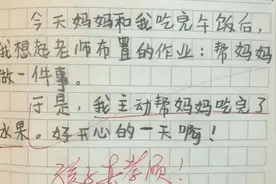 今天妈妈和我吃完午饭后,
我想起老师布置的作业:帮妈妈
做一件事。
于是,我主动帮妈妈吃完了
水果。好开心的一天啊!
孩子真孝顺!